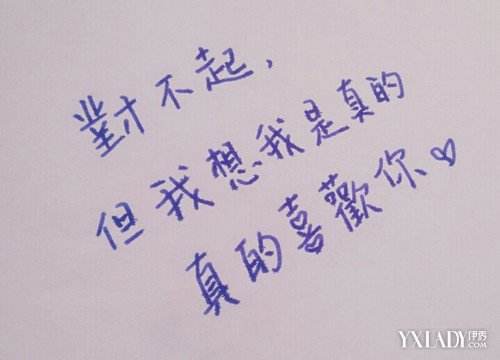 對不起，
但我想我是真的
真的喜歡你♡
YXLADY伊秀
.COM